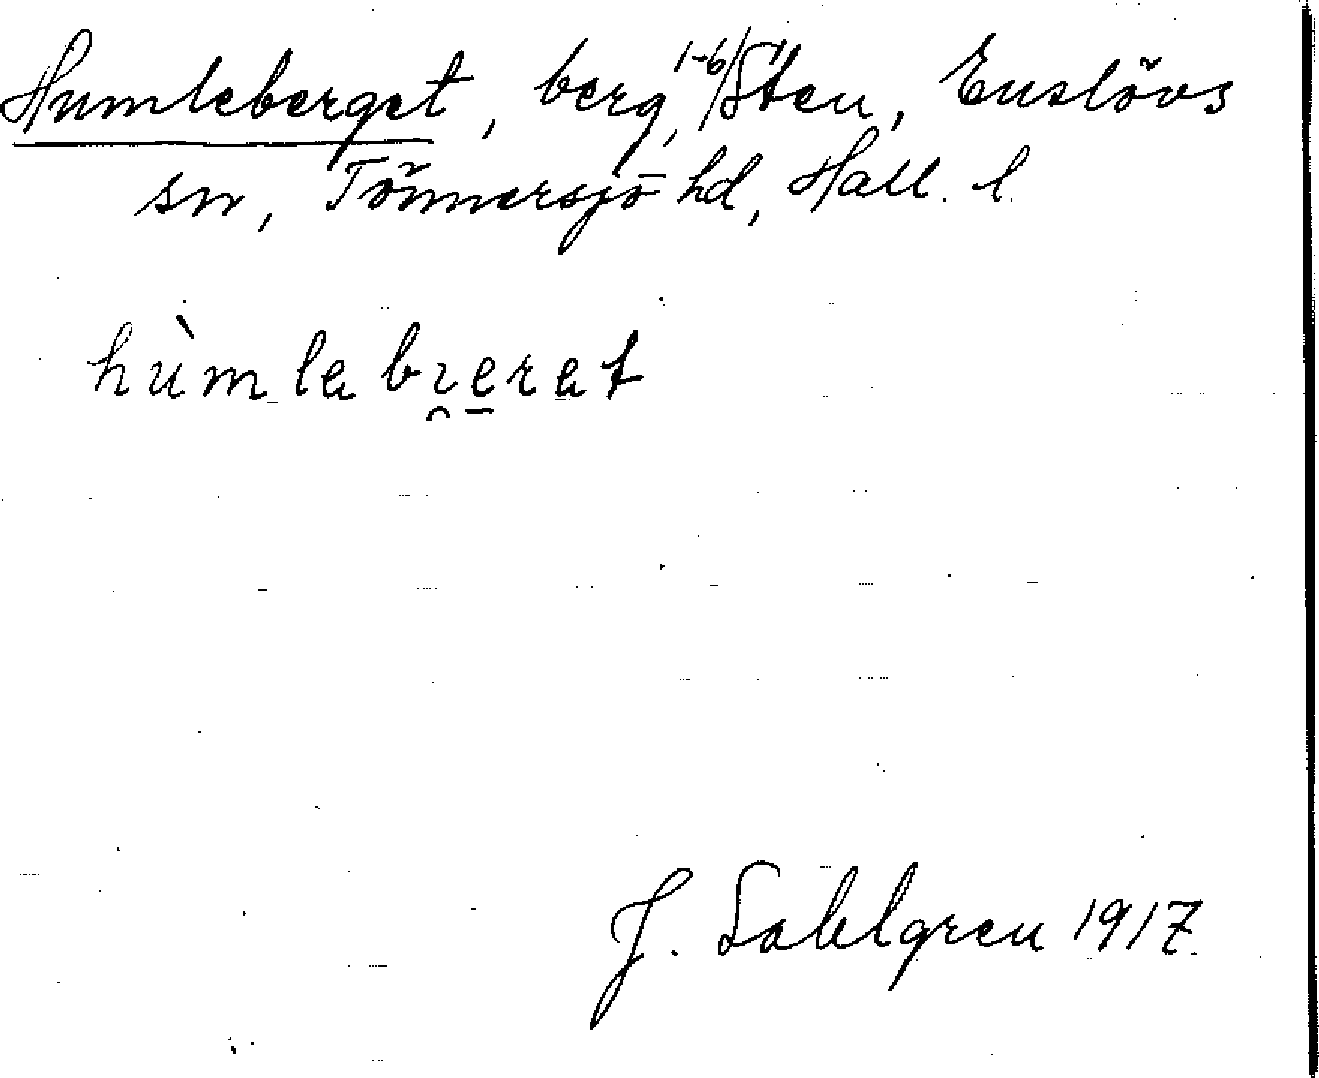 Humleberget, berg, 1-6/Sten, Enslövs
sn, Tönnersjö hd, Hall. l.
hùmlabɪ̯e̱rat
J. Sahlgren 1917